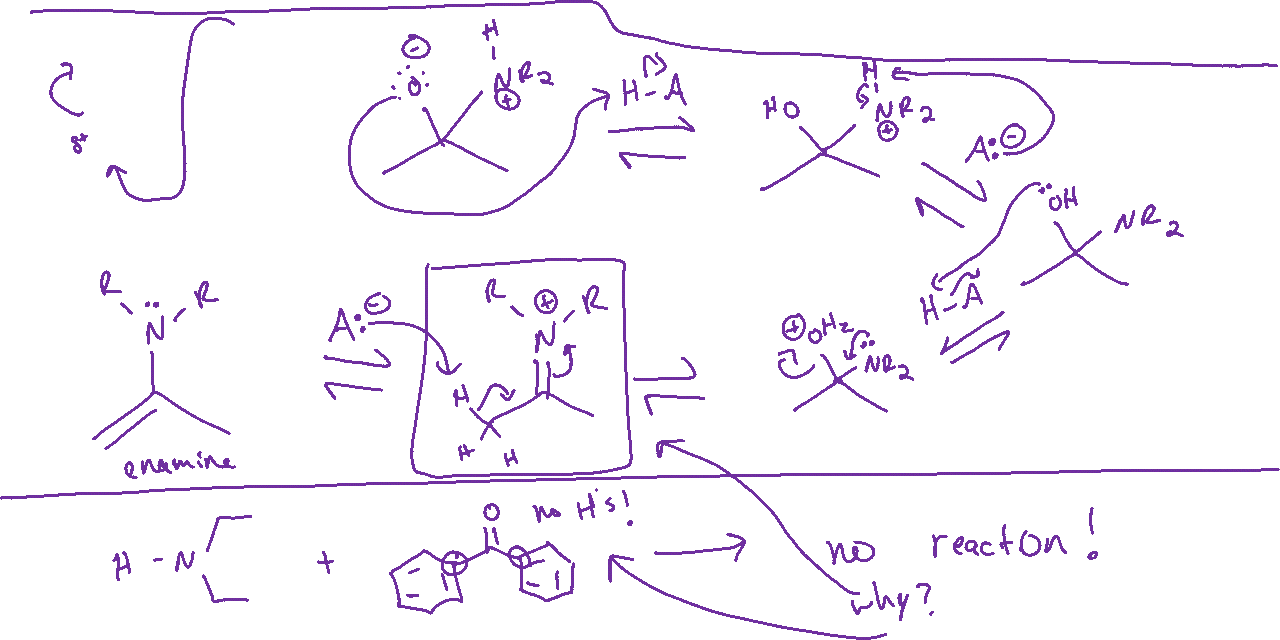 δ+
⊖
:Ö:
H
NR2
⊕
H-A
HO
H
NR2
⊕
A:⊖
:OH
NR2
H-A
⊕OH2
:NR2
R R
N
⊕
H
H H
A:⊖
R R
:N
enamine
H-N
+
O
no H's!
no reacton!
why?